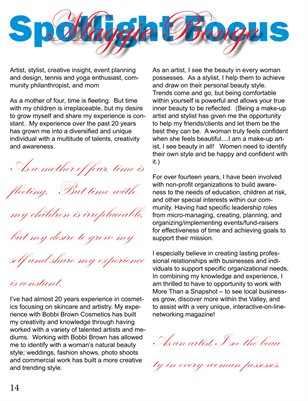 Spotlight Focus
Maggie
Artist, stylist, creative insight, event planning
and design, tennis and yoga enthusiast, com-
munity philanthropist, and mom
As a mother of four, time is fleeting.  But time
with my children is irreplaceable, but my desire
to grow myself and share my experience is con-
stant.  My experience over the past 20 years
has grown me into a diversified and unique
individual with a multitude of talents, creativity
and awareness.
As a mother of four, time is
fleeting.   But time with
my children is irreplaceable,
but my desire to grow my
self and share my experience
is constant.
I've had almost 20 years experience in cosmet-
ics focusing on skincare and artistry. My expe-
rience with Bobbi Brown Cosmetics has built
my creativity and knowledge through having
worked with a variety of talented artists and me-
diums.  Working with Bobbi Brown has allowed
me to identify with a woman's natural beauty
style; weddings, fashion shows, photo shoots
and commercial work has built a more creative
and trending style.
As an artist, I see the beauty in every woman
possesses.  As a stylist, I help them to achieve
and draw on their personal beauty style.
Trends come and go, but being comfortable
within yourself is powerful and allows your true
inner beauty to be reflected.  (Being a make-up
artist and stylist has given me the opportunity
to help my friends/clients and let them be the
best they can be.  A woman truly feels confident
when she feels beautiful....I am a make-up art-
ist, I see beauty in all!   Women need to identify
their own style and be happy and confident with
it.)
For over fourteen years, I have been involved
with non-profit organizations to build aware-
ness to the needs of education, children at risk,
and other special interests within our com-
munity. Having had specific leadership roles
from micro-managing, creating, planning, and
organizing/implementing events/fund-raisers
for effectiveness of time and achieving goals to
support their mission.
I especially believe in creating lasting profes-
sional relationships with businesses and indi-
viduals to support specific organizational needs.
In combining my knowledge and experience, I
am thrilled to have opportunity to work with
More Than a Snapshot – to see local business-
es grow, discover more within the Valley, and
to assist with a very unique, interactive-on-line-
networking magazine!
As an artist, I see the beau
ty in every woman possesses.
14